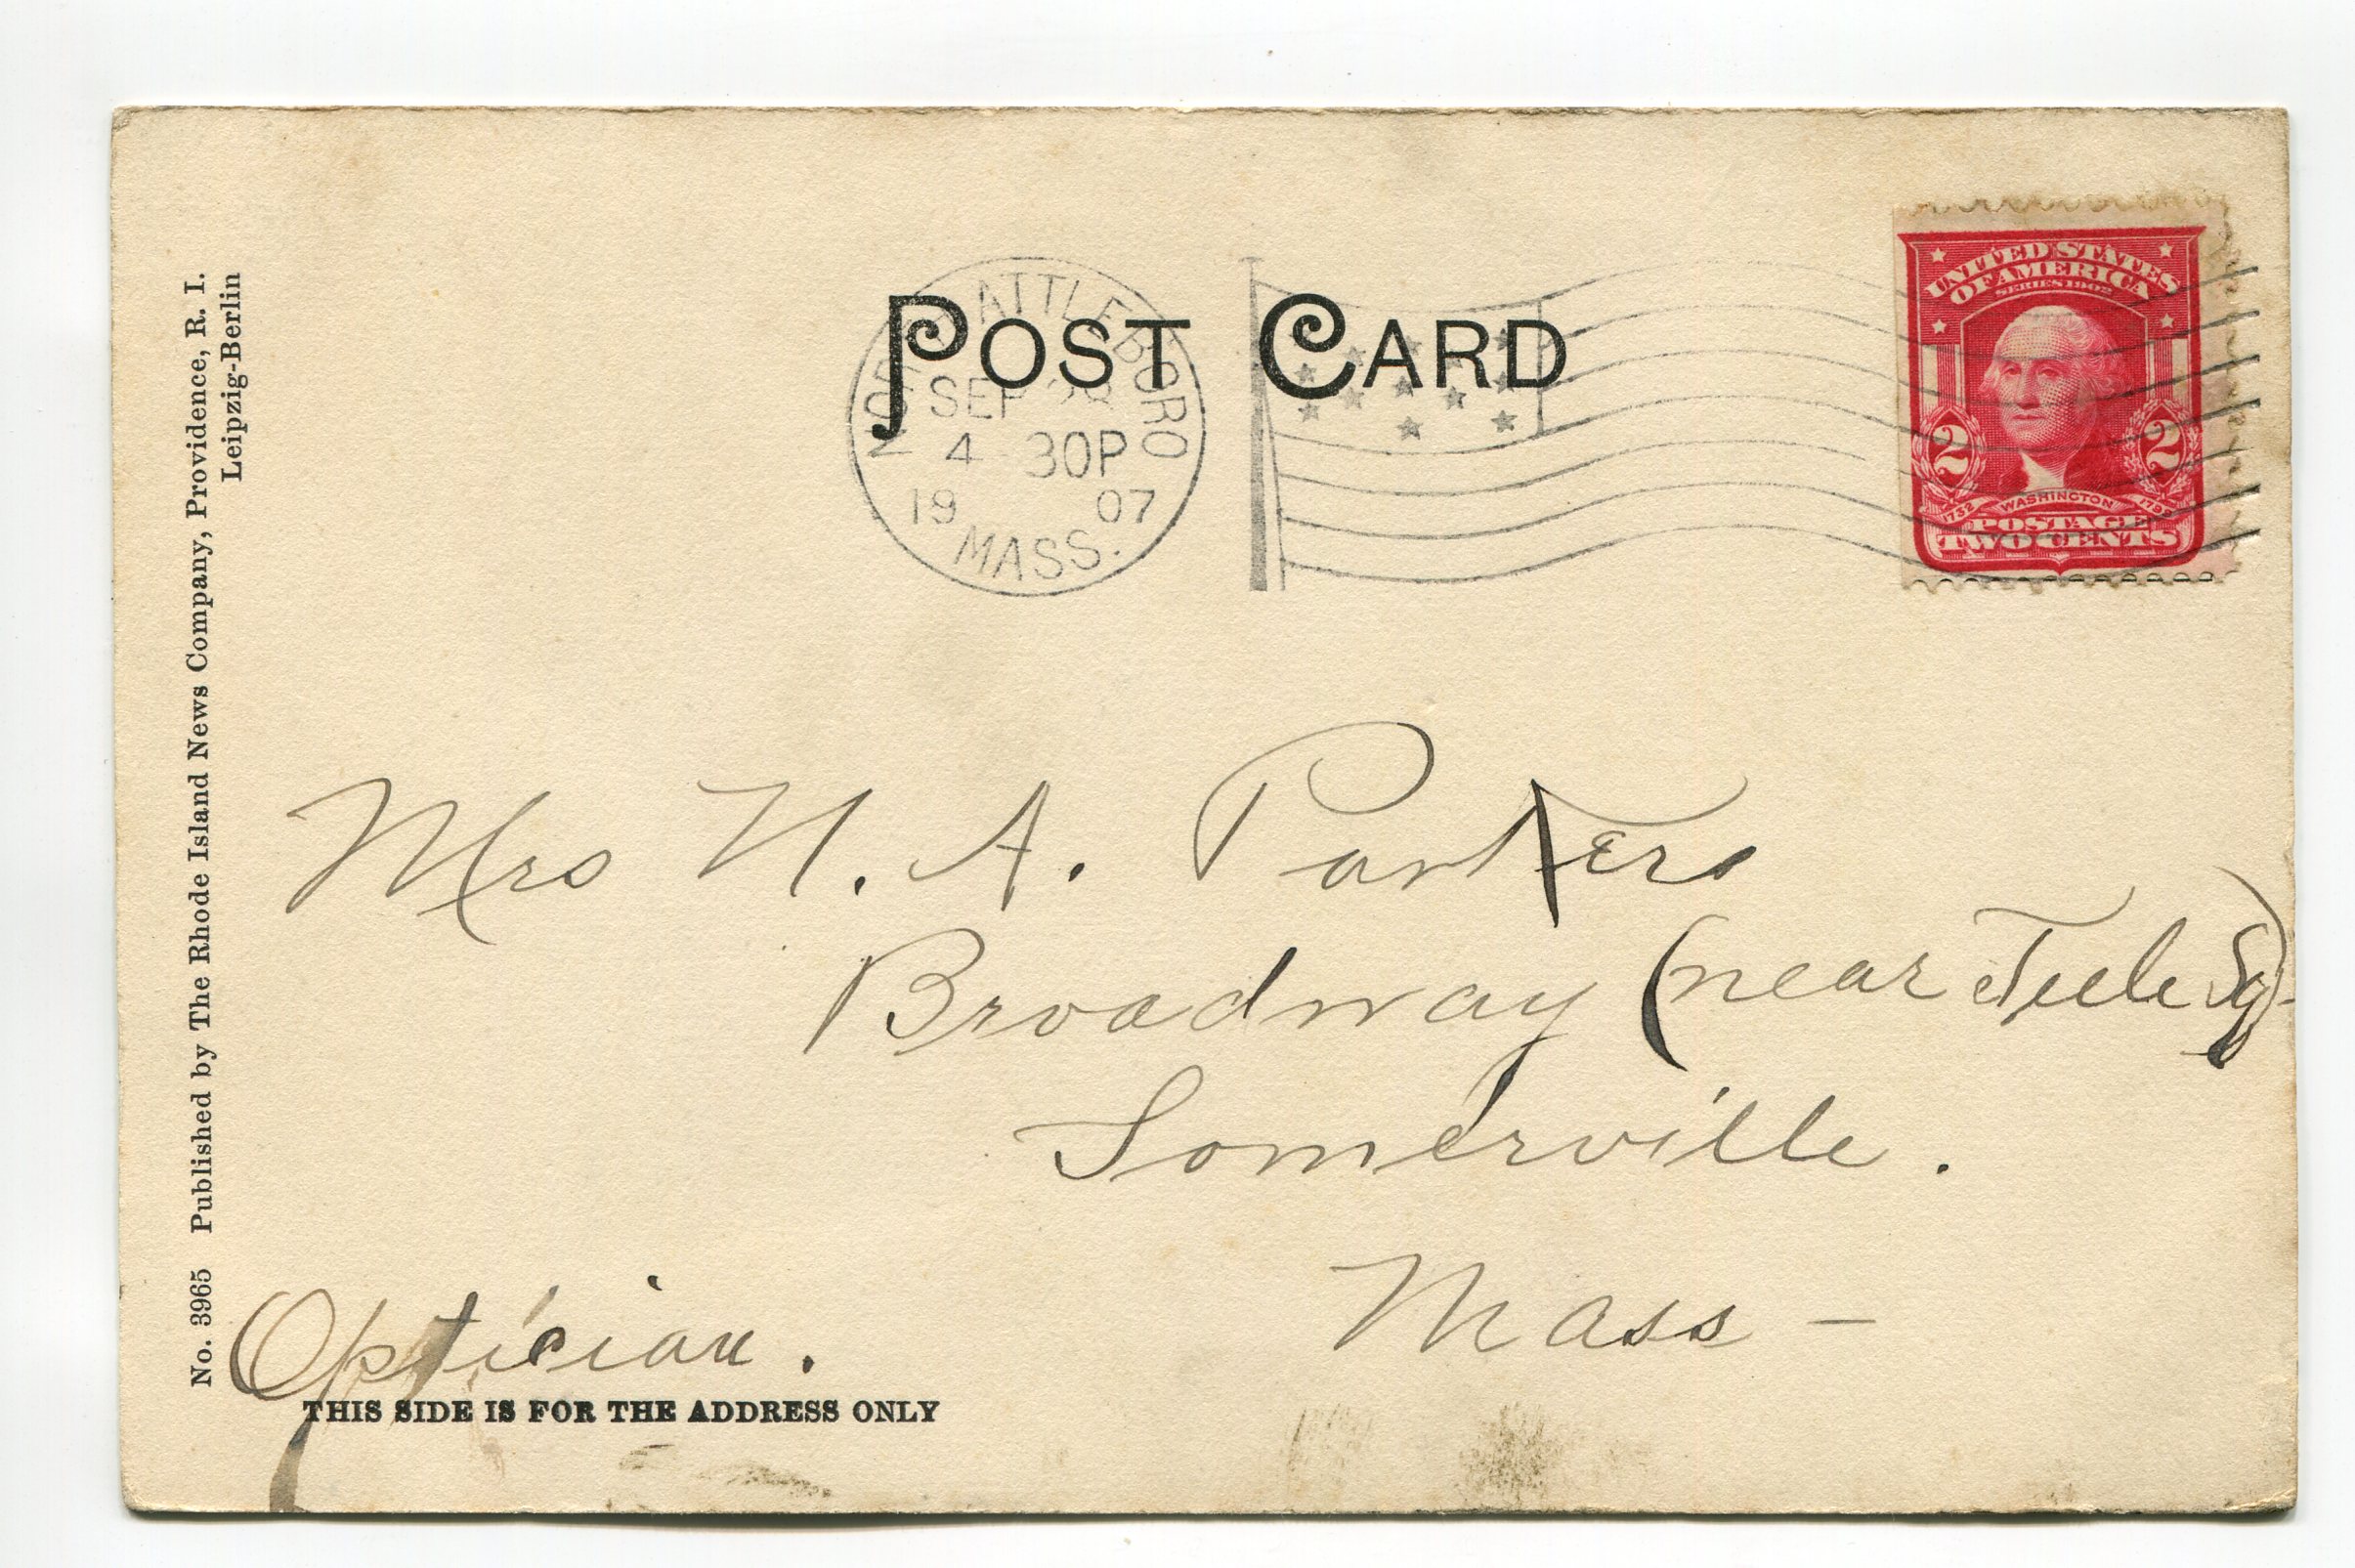 POST CARD
NORTH ATTLEBORO
SEP 28
4 30P
19 07
MASS.
UNITED STATES
OF AMERICA
SERIES 1902
2 2
1732 WASHINGTON 1799
POSTAGE
TWO CENTS
No. 3965 Published by The Rhode Island News Company, Providence, R. I.
Leipzig-Berlin
Mrs N. A. Parkers
Broadway (near Teele Sq)
Somerville.
Mass –
Optician.
THIS SIDE IS FOR THE ADDRESS ONLY